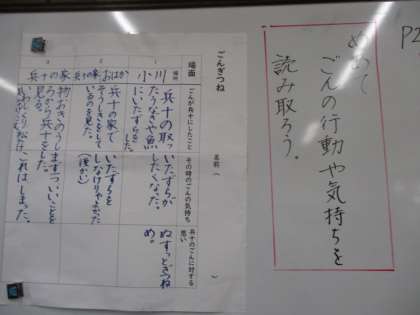 P2
めあて
ごんの行動や気持ちを
読み取ろう。
ごんぎつね
名前（　　）
場面
場所
ごんが兵十にしたこと
その時のごんの気持ち
兵十のごんに対する思い
1
小川
兵十の取っ
たうなぎや魚
にいたずらをした。
いたずらが
したくなった。
ぬすっとぎつね
め。
2
兵十の家
おはか
兵十の家で
そうしきをして
いるのを見た。
いたずらを
しなけりゃよかった
(後かい)
3
兵十の家
物おきのうしろ
から兵十を
見る。
いいことを
した。
これはしまった。